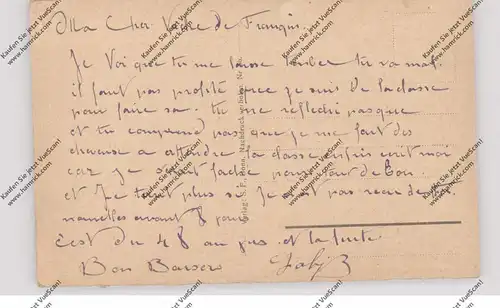 Ma Cher Vache de François.
Je Voi que tu me laisse tu va mal
il faut pas profité que je suis de la classe
pour faire sa. tu me reflechi pas que
et tu comprend pas que je me fait des
cheveux a attendre la classe enfin ecrit moi
car je sui faché pour tout de bon
et Je t'ecrit plus si Je n'ai pas recu de tes
nouvelles avant 8 jours
C'est du 48 au jus et la suite
Bon Baiser
Verlag S.P. Bonn, Nachdruck verboten
Kaufen Sie jetzt VueScan!
www.hamrick.com